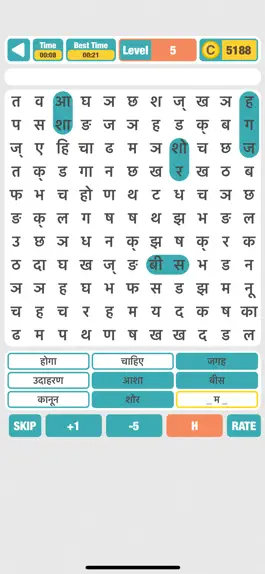 Time 00:08 Best Time 00:21 Level 5 C 5188
त व आ घ ञ छ श ज् ख ञ ह
प स शा ङ ज ञ ह ड क् ब ग
ज् ए हि चा ढ म ञ शो च छ ज
त क् ड गा न छ ख र ख ठ ब
फ भ च हो ण थ ट ध च ञ छ
ङ क् ल ग ष ष थ झ भ ङ ल
उ छ ञ ध न क् झ ष क् र क
ठ दा घ ख ज् ङ बी स भ ड न
ञ ञ ह घ भ फ स ड झ म नू
च ह च र ह म य द क ष का
ढ म प थ ण ष ख ख द ड ल
होगा चाहिए जगह
उदाहरण आशा बीस
कानून शोर _ म _
SKIP +1 -5 H RATE